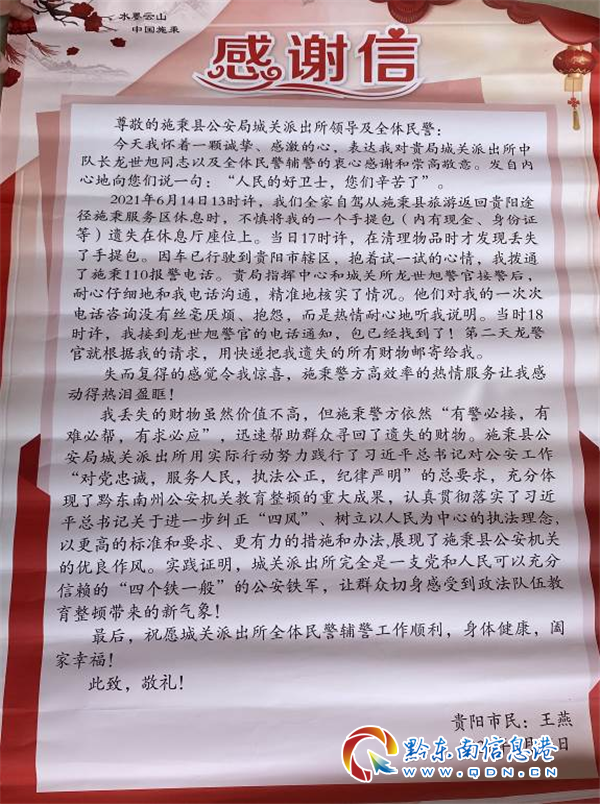 水墨云山
中国施秉
感谢信
尊敬的施秉县公安局城关派出所领导及全体民警：
今天我怀着一颗诚挚、感激的心，表达我对贵局城关派出所中
队长龙世旭同志以及全体民警辅警的衷心感谢和崇高敬意。发自内
心地向您们说一句：“人民的好卫士，您们辛苦了”。
2021年6月14日13时许，我们全家自驾从施秉县旅游返回贵阳途
径施秉服务区休息时，不慎将我的一个手提包（内有现金、身份证
等）遗失在休息厅座位上。当日17时许，在清理物品时才发现丢失
了手提包。因车已行驶到贵阳市辖区，抱着试一试的心情，我拨通
了施秉110报警电话。贵局指挥中心和城关所龙世旭警官接警后，
耐心仔细地和我电话沟通，精准地核实了情况。他们对我的一次次
电话咨询没有丝毫厌烦、抱怨，而是热情耐心地听我说明。当时18
时许，我接到龙世旭警官的电话通知，包已经找到了！第二天龙警
官就根据我的请求，用快递把我遗失的所有财物邮寄给我。
失而复得的感觉令我惊喜，施秉警方高效率的热情服务让我感
动得热泪盈眶！
我丢失的财物虽然价值不高，但施秉警方依然“有警必接，有
难必帮，有求必应”，迅速帮助群众寻回了遗失的财物。施秉县公
安局城关派出所用实际行动努力践行了习近平总书记对公安工作
“对党忠诚，服务人民，执法公正，纪律严明”的总要求，充分体
现了黔东南州公安机关教育整顿的重大成果，认真贯彻落实了习近
平总书记关于进一步纠正“四风”、树立以人民为中心的执法理念，
以更高的标准和要求、更有力的措施和办法，展现了施秉县公安机关
的优良作风。实践证明，城关派出所完全是一支党和人民可以充分
信赖的“四个铁一般”的公安铁军，让群众切身感受到政法队伍教
育整顿带来的新气象！
最后，祝愿城关派出所全体民警辅警工作顺利，身体健康，阖
家幸福！
此致，敬礼！
贵阳市民：王燕
日
黔东南信息港
www.QDN.cn